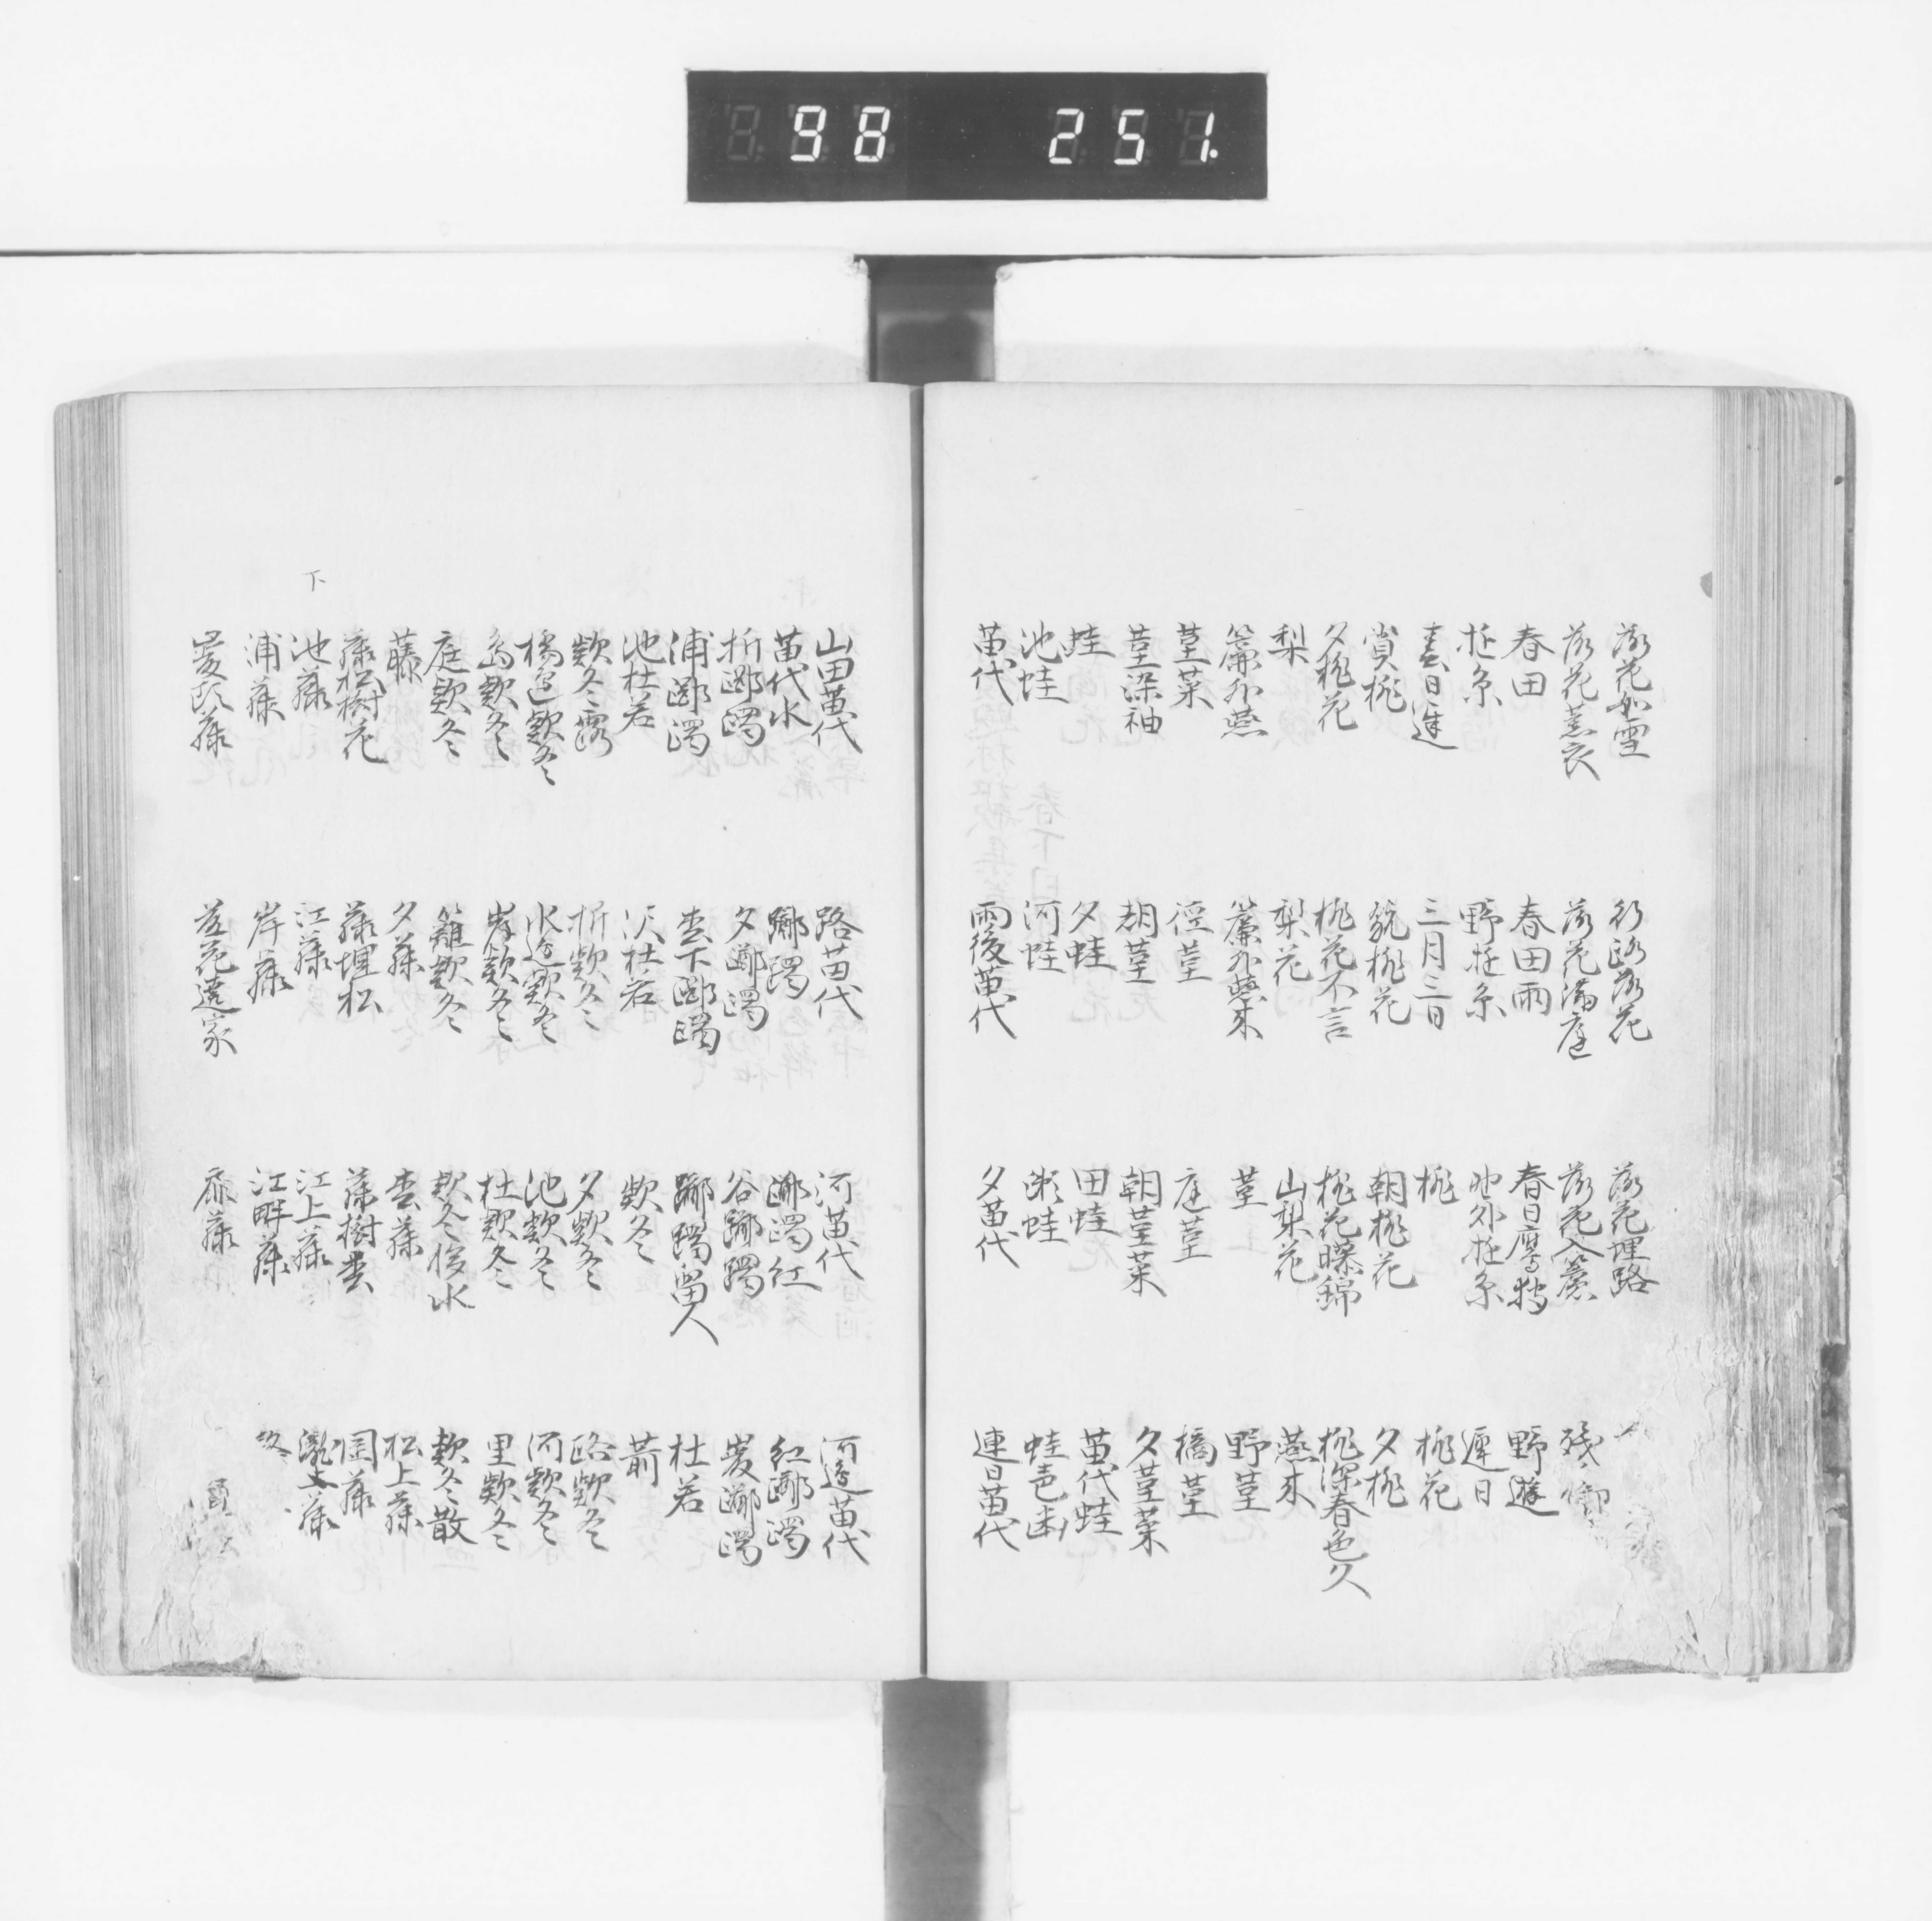 98 251.
落花如雪 行路落花 落花埋路
落花薫衣 落花満庭 落花入簾 残
春田 春田雨 春日鷹狩 野遊
遊糸 野遊糸 野外遊糸 遅日
春日遅 三月三日 桃 桃花
賞桃 翫桃花 朝桃花 夕桃
夕桃花 桃花不言 桃花曝錦 桃深春色久
梨 梨花 山梨花 燕来
簾外燕 簾外燕来 菫 野菫
菫菜 径菫 庭菫 橋菫
菫染袖 朝菫 朝菫菜 夕菫菜
蛙 夕蛙 田蛙 苗代蛙
池蛙 河蛙 瀬蛙 蛙声
苗代 雨後苗代 夕苗代 連日苗代
山田苗代 路苗代 河苗代 河辺苗代
苗代水 躑躅 躑躅紅 紅躑躅
折躑躅 夕躑躅 谷躑躅 岩躑躅
浦躑躅 松下躑躅 躑躅留人 杜若
池杜若 沢杜若 款冬
款冬露 折款冬 夕款冬 路款冬
橋辺款冬 水辺款冬 池款冬 河款冬
島款冬 岸款冬 杜款冬 里款冬
庭款冬 籬款冬 款冬移水 款冬散
藤 夕藤 松藤 松上藤
藤松樹花 藤埋松 藤樹松 園藤
下
池藤 江藤 江上藤 滝上藤
浦藤 岸藤 江畔藤
藤 藤花遶家 藤